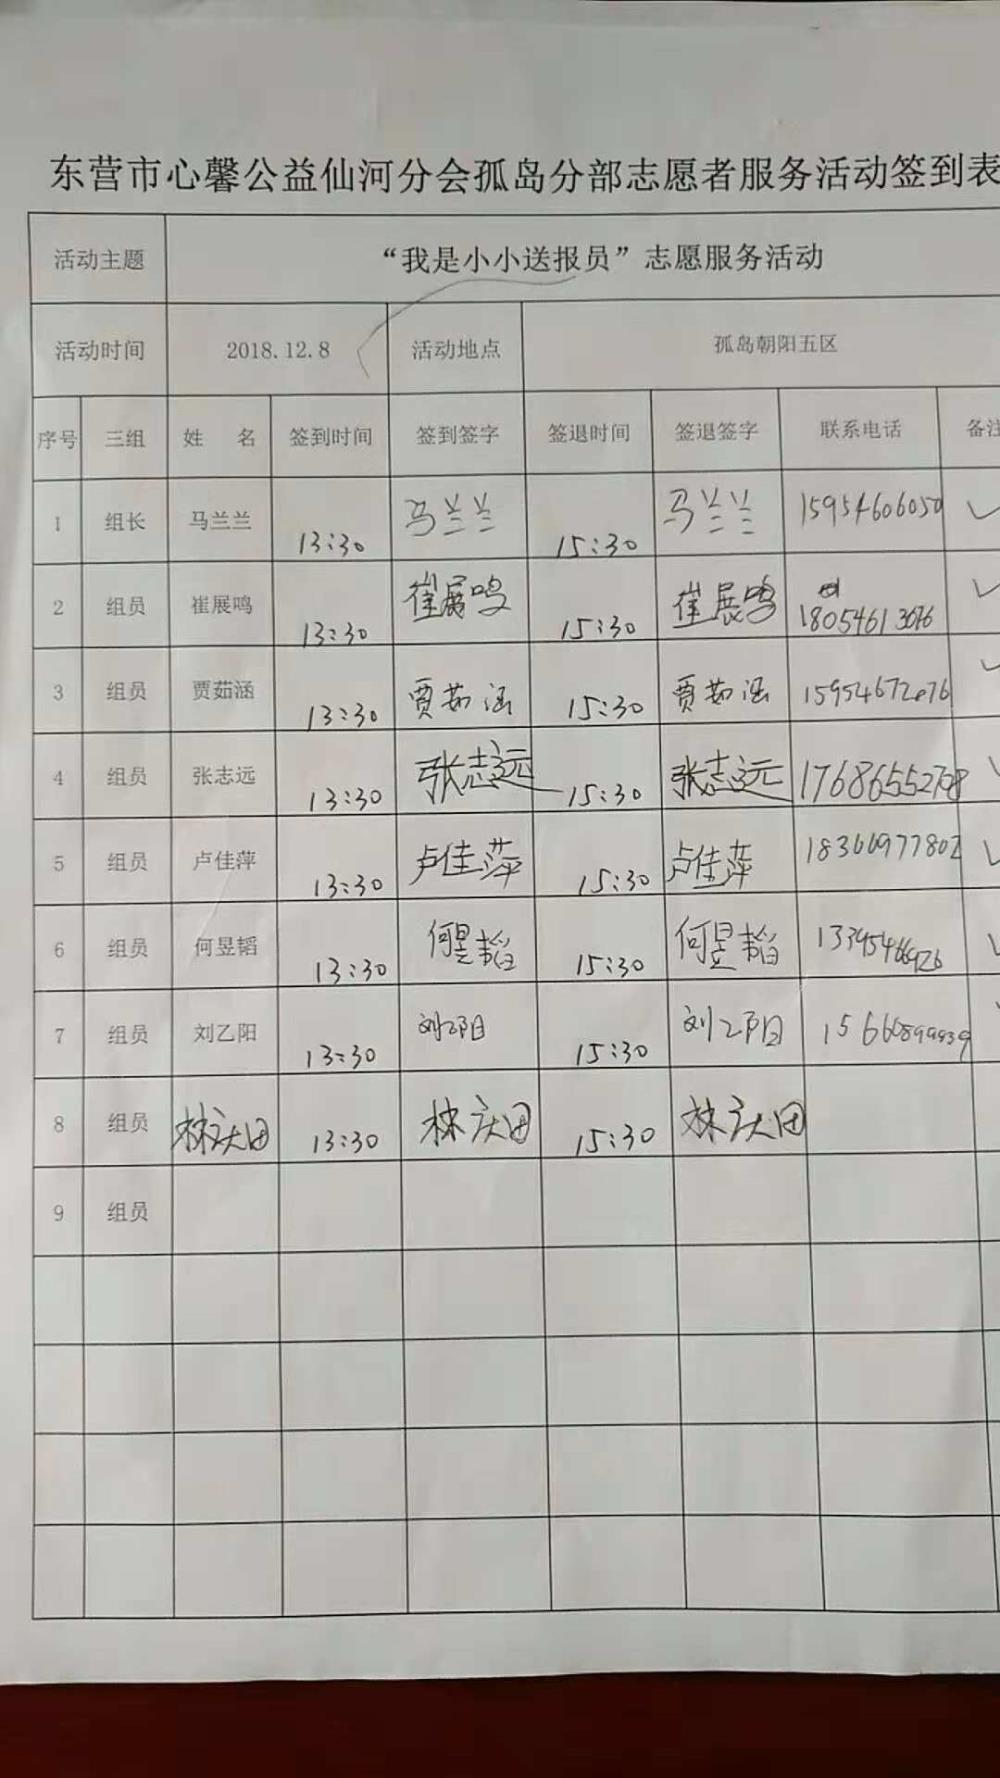 东营市心馨公益仙河分会孤岛分部志愿者服务活动签到表
活动主题 “我是小小送报员”志愿服务活动
活动时间 2018.12.8 活动地点 孤岛朝阳五区
序号 三组 姓 名 签到时间 签到签字 签退时间 签退签字 联系电话 备注
1 组长 马兰兰 13:30 马兰兰 15:30 马兰兰 15954606050 ✓
2 组员 崔展鸣 13:30 崔展鸣 15:30 崔展鸣 ✓
3 组员 贾茹涵 13:30 贾茹涵 15:30 贾茹涵 ✓
4 组员 张志远 13:30 张志远 15:30 张志远 ✓
5 组员 卢佳萍 13:30 卢佳萍 15:30 卢佳萍 18366977802 ✓
6 组员 何昱韬 13:30 何昱韬 15:30 何昱韬 ✓
7 组员 刘乙阳 13:30 刘乙阳 15:30 刘乙阳
8 组员 林庆田 13:30 林庆田 15:30 林庆田
9 组员